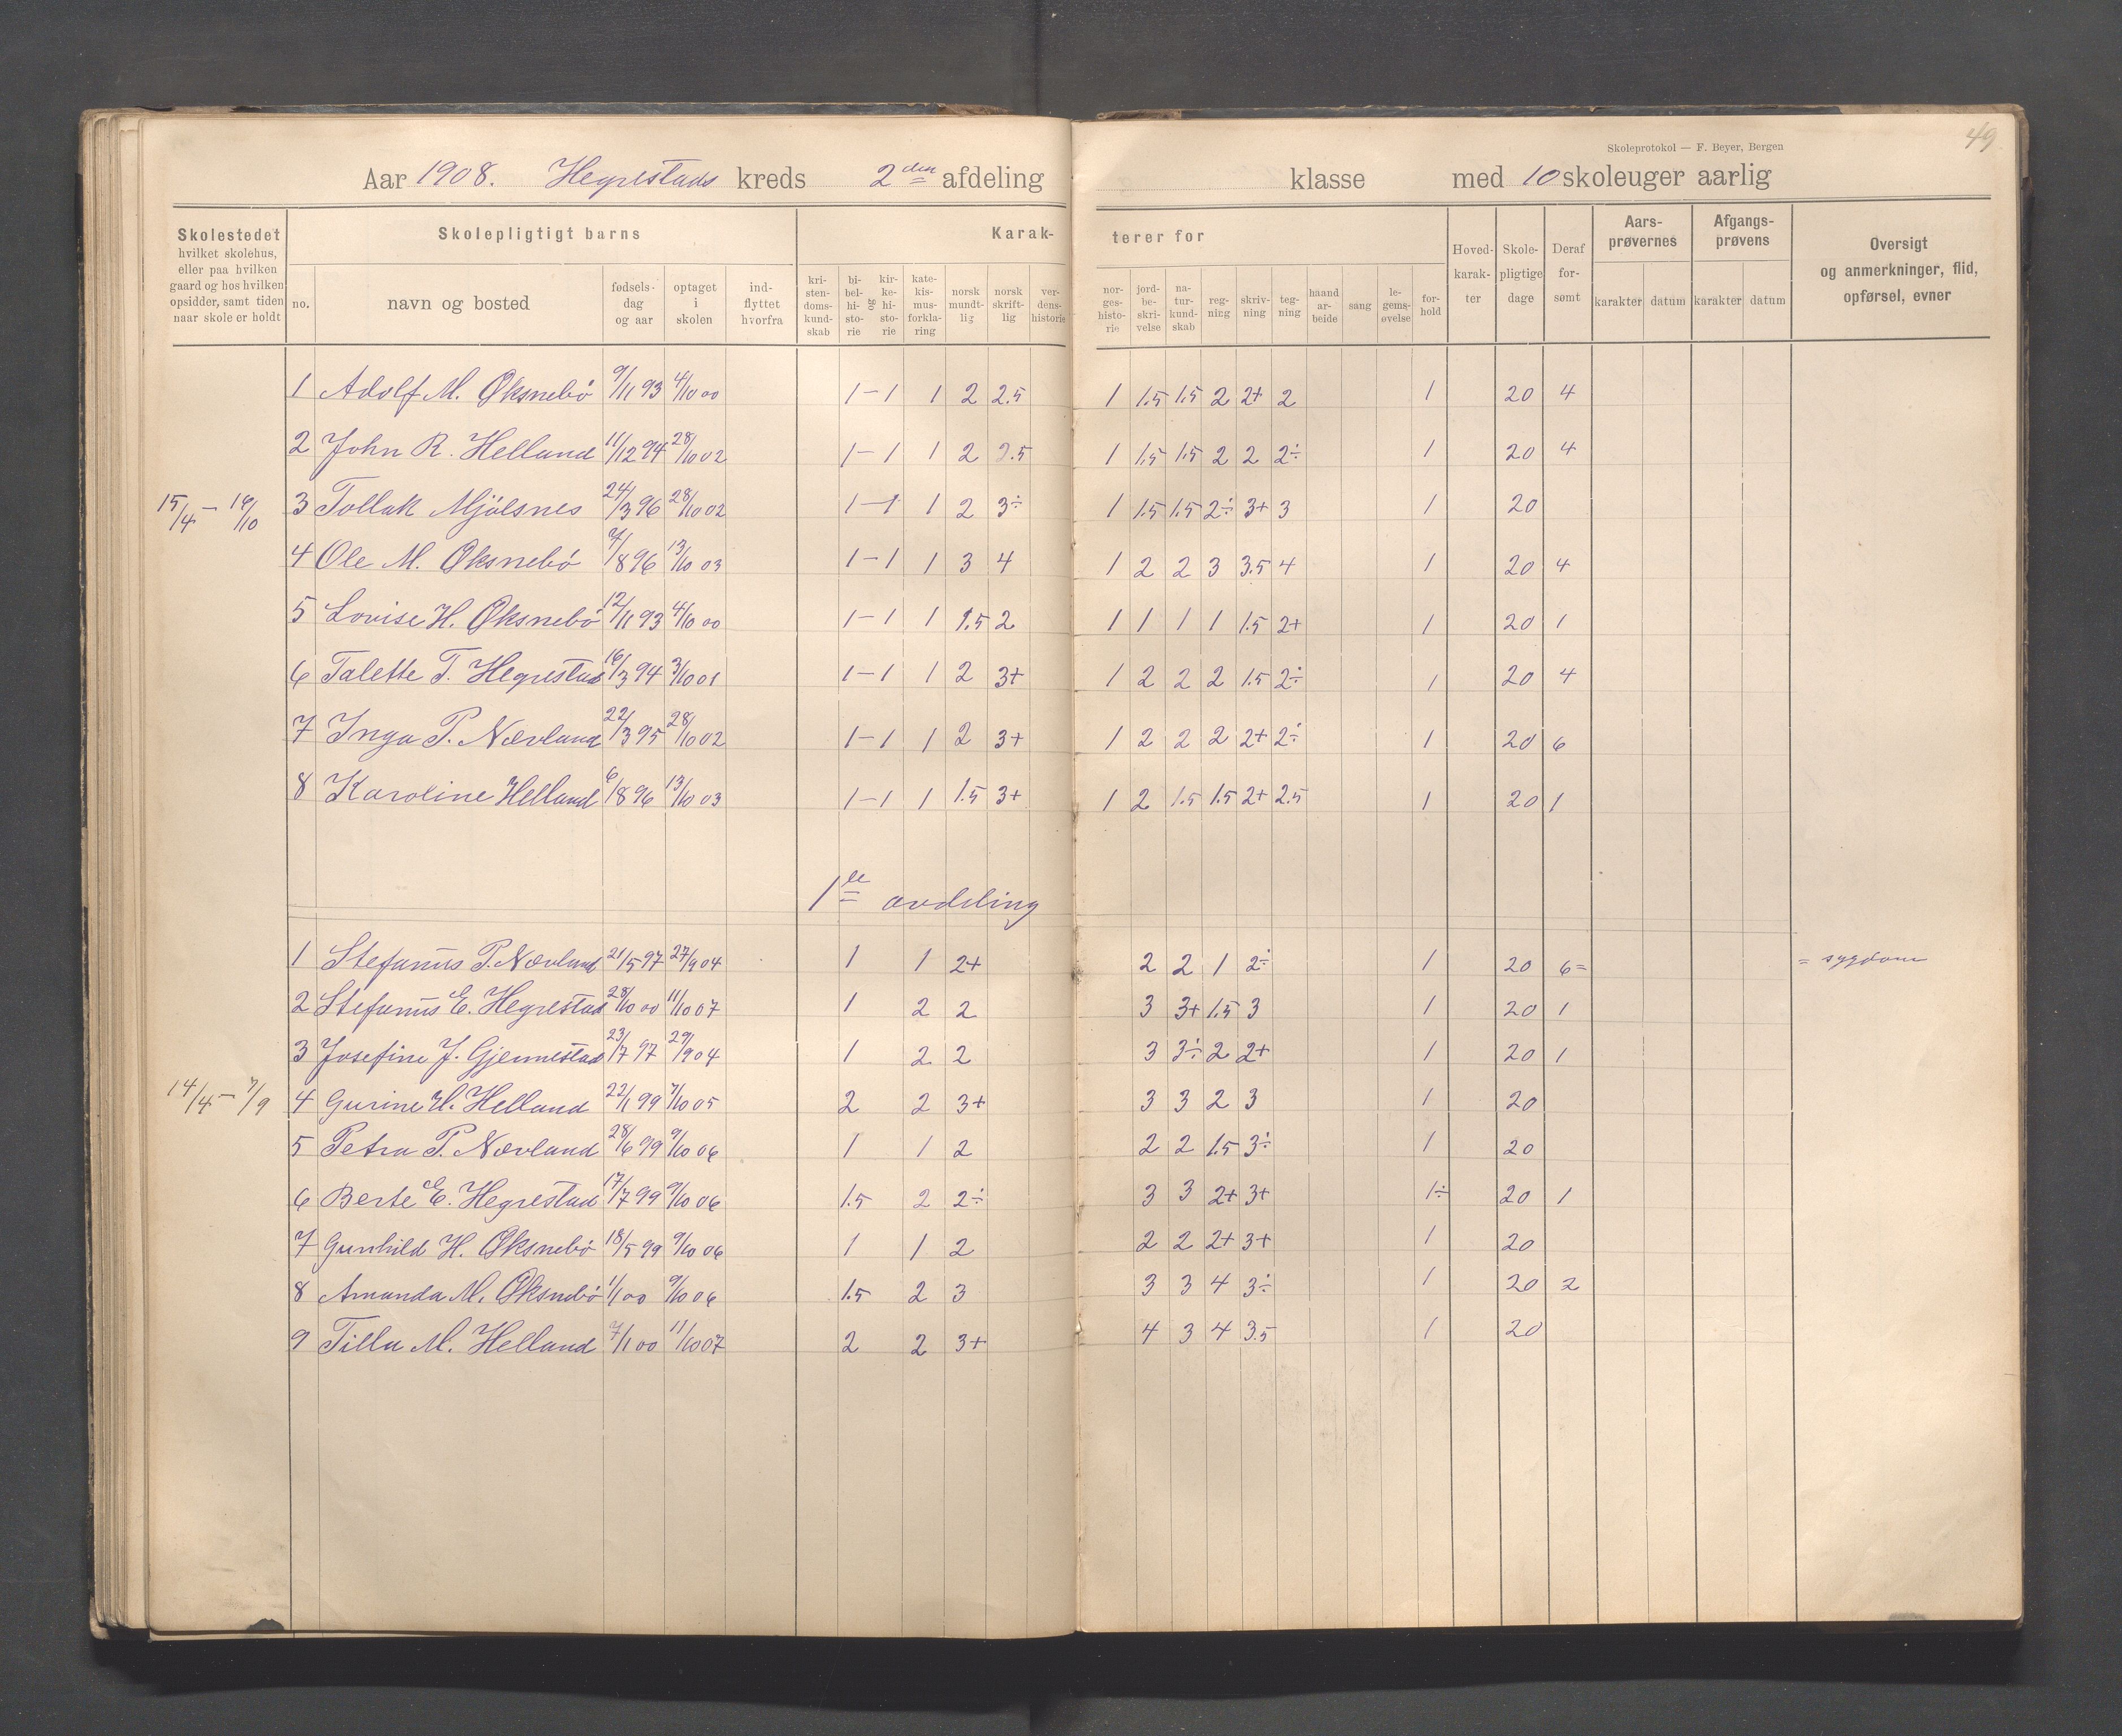 49
Skoleprotokol — F. Beyer, Bergen
Aar 1908. Hegrestads kreds 2den afdeling klasse med 10 skoleuger aarlig
Skolestedet hvilket skolehus, eller paa hvilken gaard og hos hvilken opsidder, samt tiden naar skole er holdt
Skolepligtigt barns
Karakterer for
Hovedkarakter
Skolepligtige dage
Deraf forsømt
Aarsprøvernes
Afgangsprøvens
Oversigt og anmerkninger, flid, opførsel, evner
no. navn og bosted fødselsdag og aar optaget i skolen indflyttet hvorfra kristendomskundskab bibelhistorie og kirkehistorie katekismusforklaring norsk mundtlig norsk skriftlig verdenshistorie norgeshistorie jordbeskrivelse naturkundskab regning skrivning tegning haandarbeide sang legemsøvelse forhold karakter datum karakter datum
1 Adolf M. Øksnebø 9/11 93 4/10 00 1 - 1 1 2 2.5 1 1.5 1.5 2 2+ 2 1 20 4
2 John R. Helland 11/12 94 28/10 02 1 - 1 1 2 2.5 1 1.5 1.5 2 2 2÷ 1 20 4
15/4 - 16/10 3 Tollak Mjølsnes 24/3 96 28/10 02 1 - 1 1 2 3÷ 1 1.5 1.5 2÷ 3+ 3 1 20
4 Ole M. Øksnebø 7/8 96 13/10 03 1 - 1 1 3 4 1 2 2 3 3.5 4 1 20 4
5 Lovise H. Øksnebø 12/11 93 4/10 00 1 - 1 1 1.5 2 1 1 1 1 1.5 2+ 1 20 1
6 Talette T. Hegrestad 16/3 94 3/10 01 1 - 1 1 2 3+ 1 2 2 2 1.5 2÷ 1 20 4
7 Inga P. Nævland 22/3 95 28/10 02 1 - 1 1 2 3+ 1 2 2 2 2+ 2÷ 1 20 6
8 Karoline Helland 6/8 96 13/10 03 1 - 1 1 1.5 3+ 1 2 1.5 1.5 2+ 2.5 1 20 1
1ste avdeling
1 Stefanus P. Nævland 21/5 97 27/9 04 1 1 2+ 2 2 1 2÷ 1 20 6= = sygdom
2 Stefanus E. Hegrestad 28/10 00 11/10 07 1 2 2 3 3+ 1.5 3 1 20 1
3 Josefine J. Gjennestad 23/7 97 29/9 04 1 2 2 3 3÷ 2 2+ 1 20 1
14/4 - 7/9 4 Gurine H. Helland 22/1 99 7/10 05 2 2 3+ 3 3 2 3 1 20
5 Petra P. Nævland 28/6 99 9/10 06 1 1 2 2 2 1.5 3÷ 1 20
6 Berte E. Hegrestad 17/7 99 9/10 06 1.5 2 2÷ 3 3 2+ 3+ 1÷ 20 1
7 Gunhild H. Øksnebø 18/5 99 9/10 06 1 1 2 2 2 2+ 3+ 1 20
8 Amanda M. Øksnebø 1/1 00 9/10 06 1.5 2 3 3 3 4 3÷ 1 20 2
9 Tilla M. Helland 7/1 00 11/10 07 2 2 3+ 4 3 4 3.5 1 20